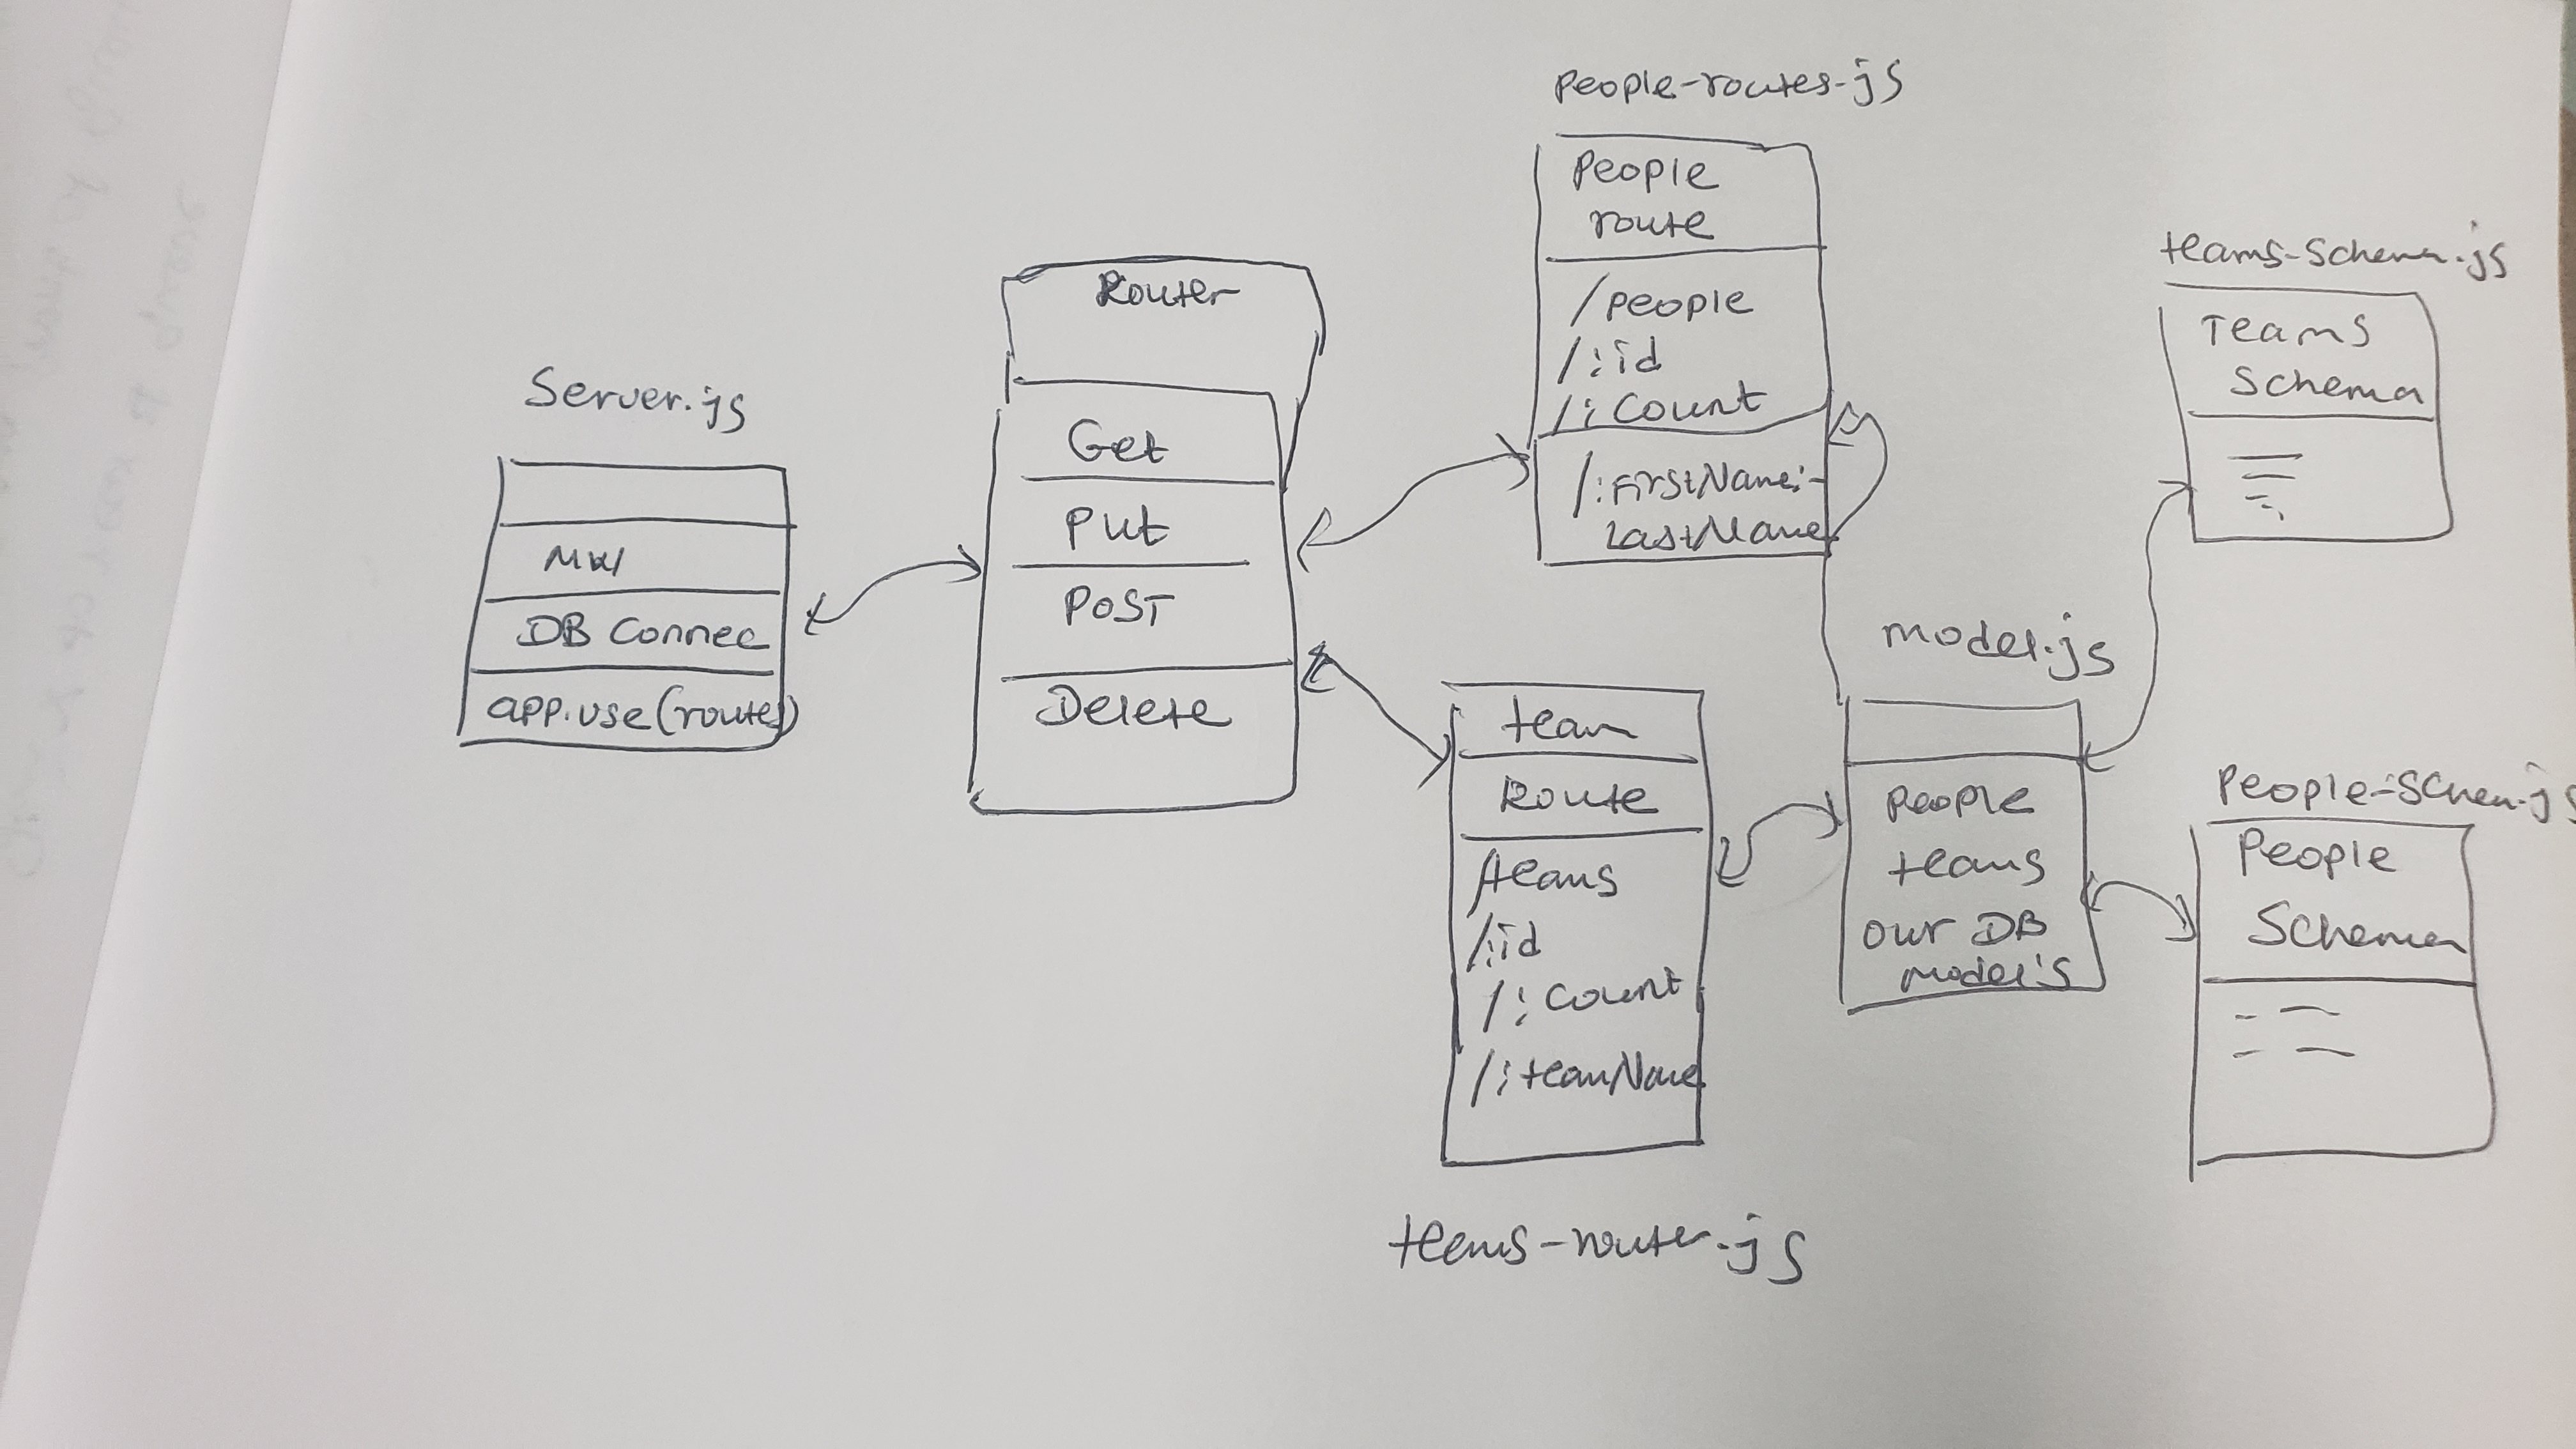 Server.js
MW
DB Connec
app.use(routes)
Router
Get
Put
POST
Delete
People-routes.js
People
route
/people
/:id
/:count
/:FirstName:-
LastName
team
Route
/teams
/:id
/:count
/:teamName
teams-router.js
model.js
People
teams
our DB
model's
teams-schema.js
Teams
Schema
People-Schem.js
People
Schema